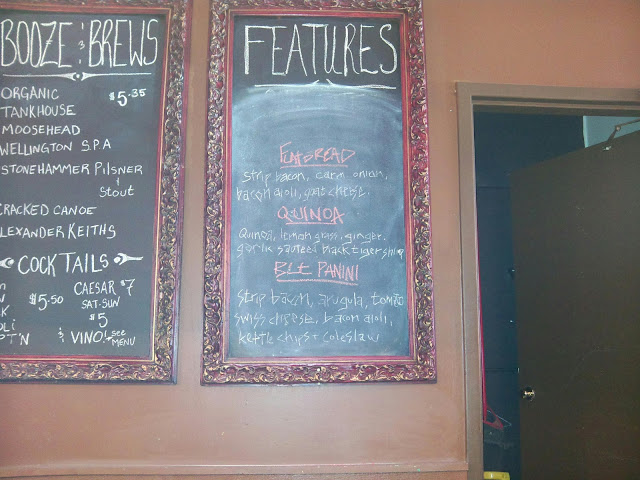 BOOZE & BREWS
ORGANIC $5.35
TANKHOUSE
MOOSEHEAD
WELLINGTON S.P.A
STONEHAMMER PILSNER
& Stout
CRACKED CANOE
ALEXANDER KEITHS
COCKTAILS
$5.50
CAESAR $7
SAT-SUN
$5
& VINO! see MENU
FEATURES
FLATBREAD
Strip bacon, carm onion,
bacon aioli, goat cheese.
QUINOA
Quinoa, lemon grass, ginger,
garlic sauteed black tiger shrimp
BLT PANINI
Strip bacon, arugula, tomato
swiss cheese, bacon aioli,
kettle chips + coleslaw